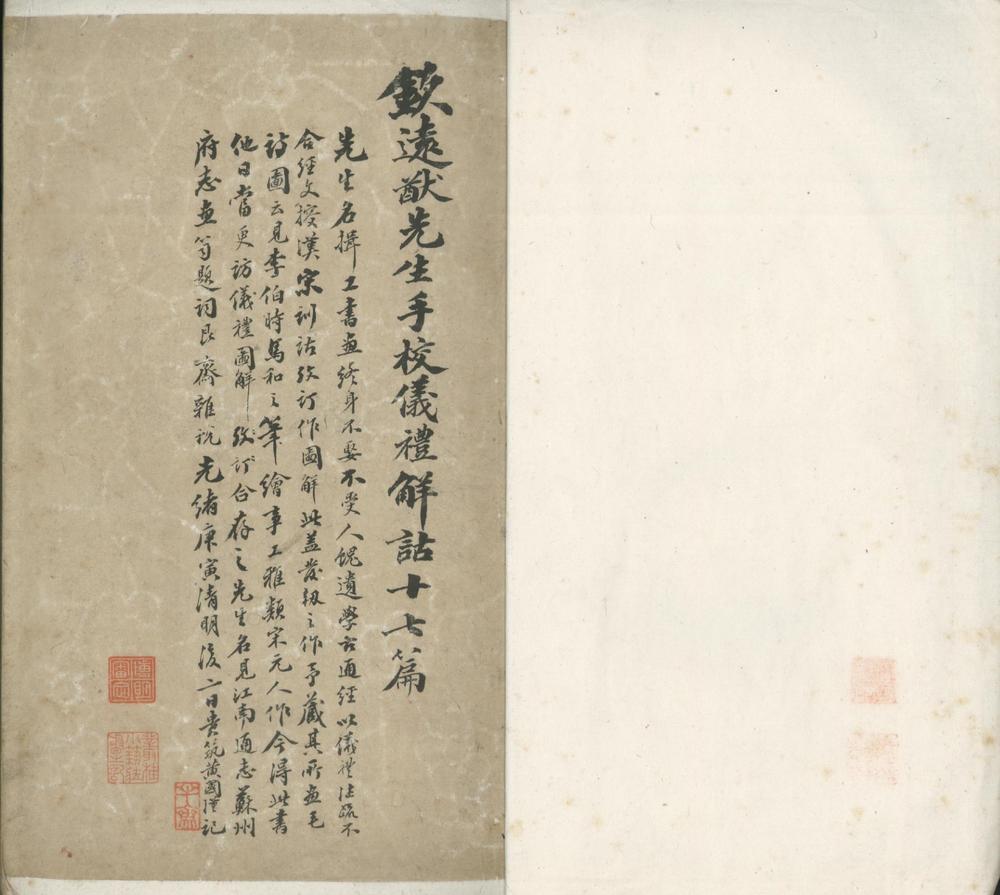 欽遠猷先生手校儀禮解詁十七篇
先生名揖工書畫終身不娶不受人餽遺學古通經以儀禮注疏不
合經文援漢宋訓詁攷訂作圖解此蓋發軔之作予藏其所畫毛
詩圖云見李伯時馬和之筆繪事工雅類宋元人作今得此書
他日當更訪儀禮圖解攷訂合存之先生名見江南通志蘇州
府志畫翁題詞艮齋雜說光緒庚寅清明後二日貴筑黃國瑾記